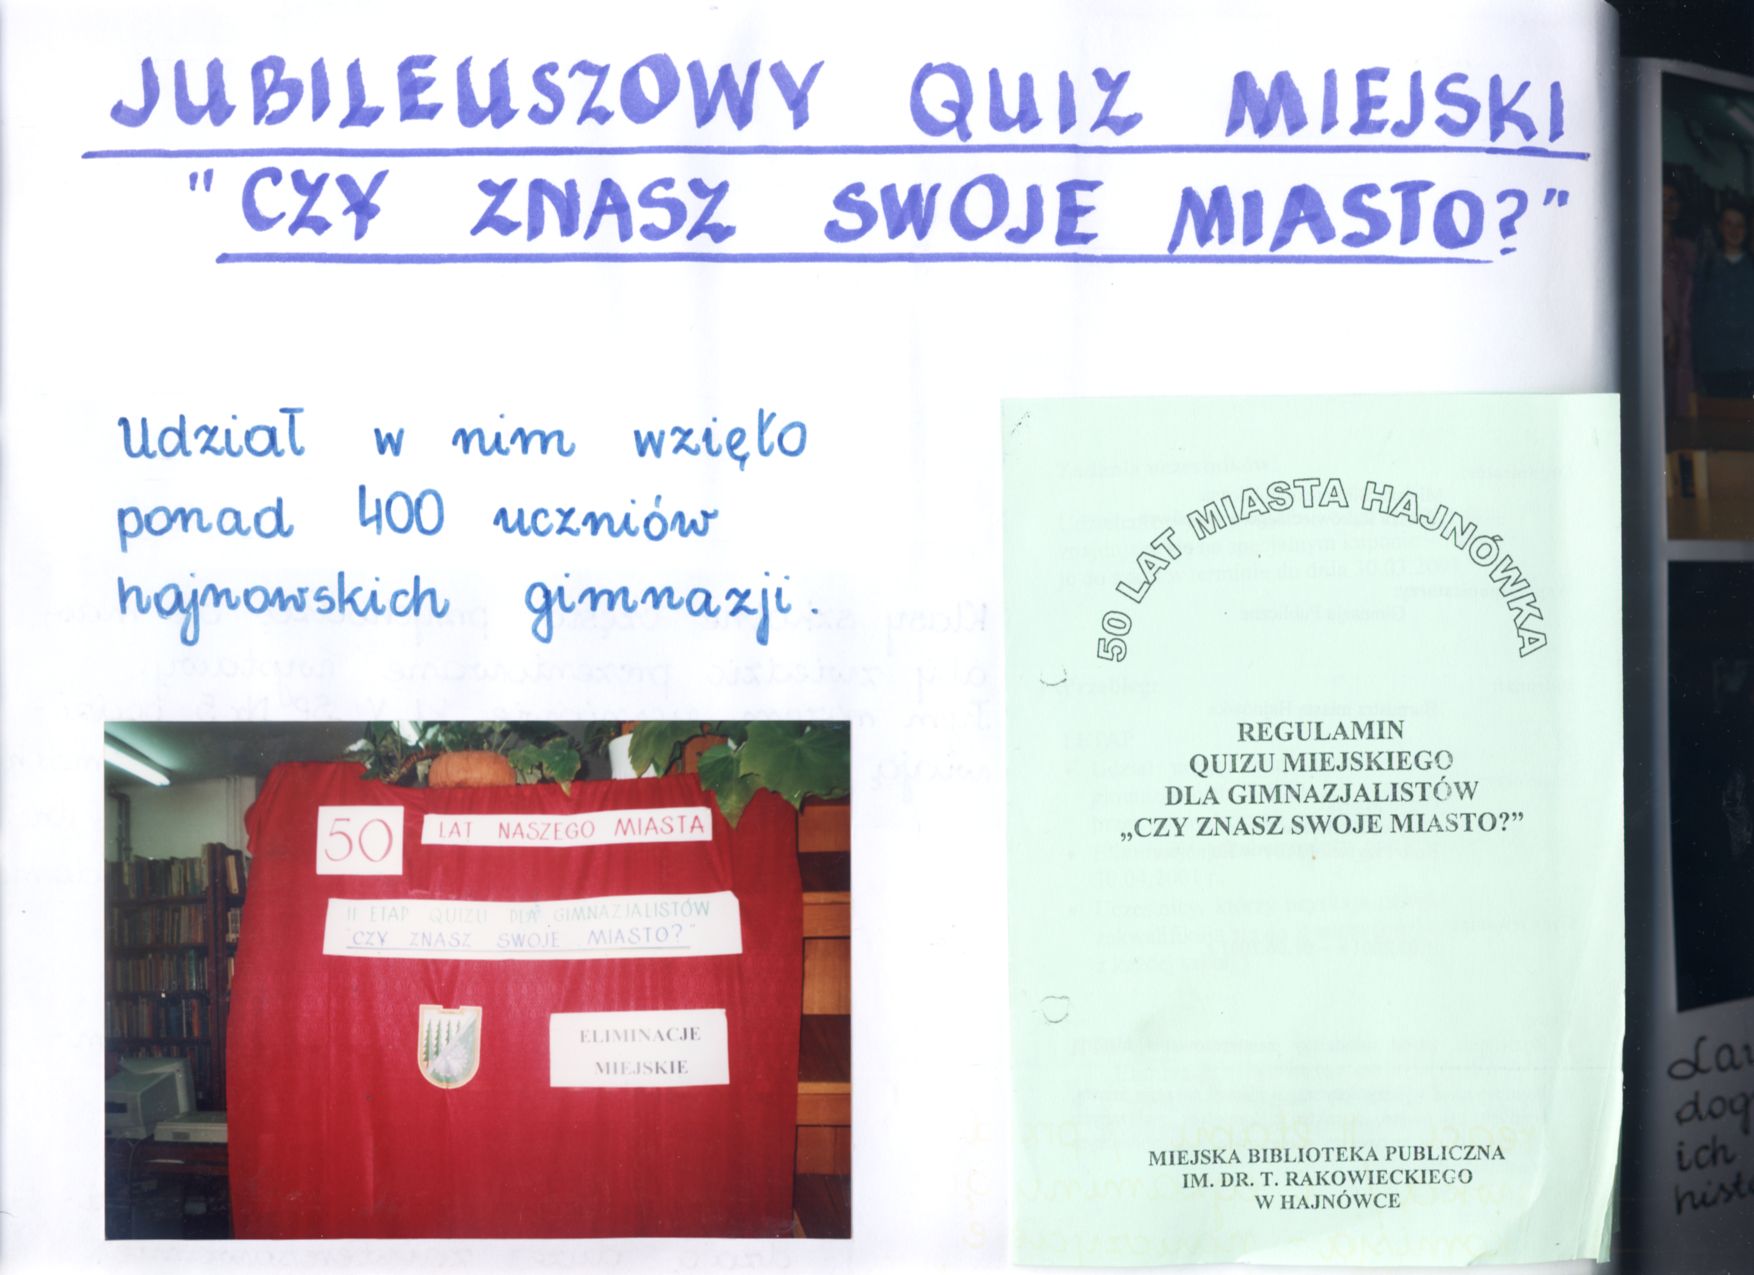 JUBILEUSZOWY QUIZ MIEJSKI
"CZY ZNASZ SWOJE MIASTO?"
Udział w nim wzięło
ponad 400 uczniów
hajnowskich gimnazji.
50 LAT NASZEGO MIASTA
II ETAP QUIZU DLA GIMNAZJALISTÓW
"CZY ZNASZ SWOJE MIASTO?"
ELIMINACJE
MIEJSKIE
50 LAT MIASTA HAJNÓWKA
REGULAMIN
QUIZU MIEJSKIEGO
DLA GIMNAZJALISTÓW
„CZY ZNASZ SWOJE MIASTO?”
MIEJSKA BIBLIOTEKA PUBLICZNA
IM. DR. T. RAKOWIECKIEGO
W HAJNÓWCE
ich